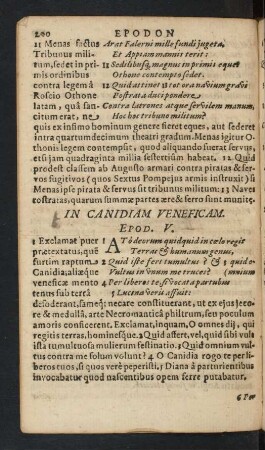 200 EPODON
11 Menas factus Arat Falerni mille fundi jugera,
Tribunus mili- Et Appiam mannis terit:
tum, sedet in pri Sedilibusq; magnus in primis eques
mis ordinibus Othone contempto sedet.
contra legem à 12 Quid attinet 13 tot ora navium gravi
Roscio Othone Rostrata duci pondere
latam, quâ san- Contra latrones atque servilem manum,
citum erat, ut ne Hoc hoc tribuno militum?
quis ex infimo hominum genere fieret eques, aut sederet
intra quartumdecimum theatri gradum. Menas igitur O-
thonis legem contempsit, quod aliquando fuerat servus,
etsi jam quadraginta millia sestertiûm habeat. 12 Quid
prodest classem ab Augusto armari contra piratas & ser-
vos fugitivos (quos Sextus Pompejus armis instruxit) si
Menas ipse pirata & servus sit tribunus militum: 13 Naves
rostratas, quarum summæ partes ære & ferro sunt munitæ.
IN CANIDIAM VENEFICAM.
EPOD. V.
1 Exclamat puer AT ô deorum quidquid in cælo regit
prætextatus, quē Terras & humanum genus,
furtim raptum 2 Quid iste fert tumultus? & 3 quid o-
Canidia; aliæque Vultus in unum me truces? (mnium
veneficæ mento 4 Per liberos te, si vocata partubus
tenus sub terrâ 5 Lucina veris affuit:
defoderant, fameq; necare constituerant, ut ex ejus jeco-
re & medullâ, arte Necromanticâ philtrum, seu poculum
amoris conficerent. Exclamat, inquam, O omnes dij, qui
regitis terras, hominesque. 2 Quid affert, vel, quid sibi vult
ista tumultuosa mulierum festinatio. 3 Quid omnium vul-
tus contra me solum volunt? 4 O Canidia rogo te per li-
beros tuos, si quos verè peperisti, 5 Diana à parturientibus
invocabatur quod nascentibus opem ferre putabatur.
6 Per